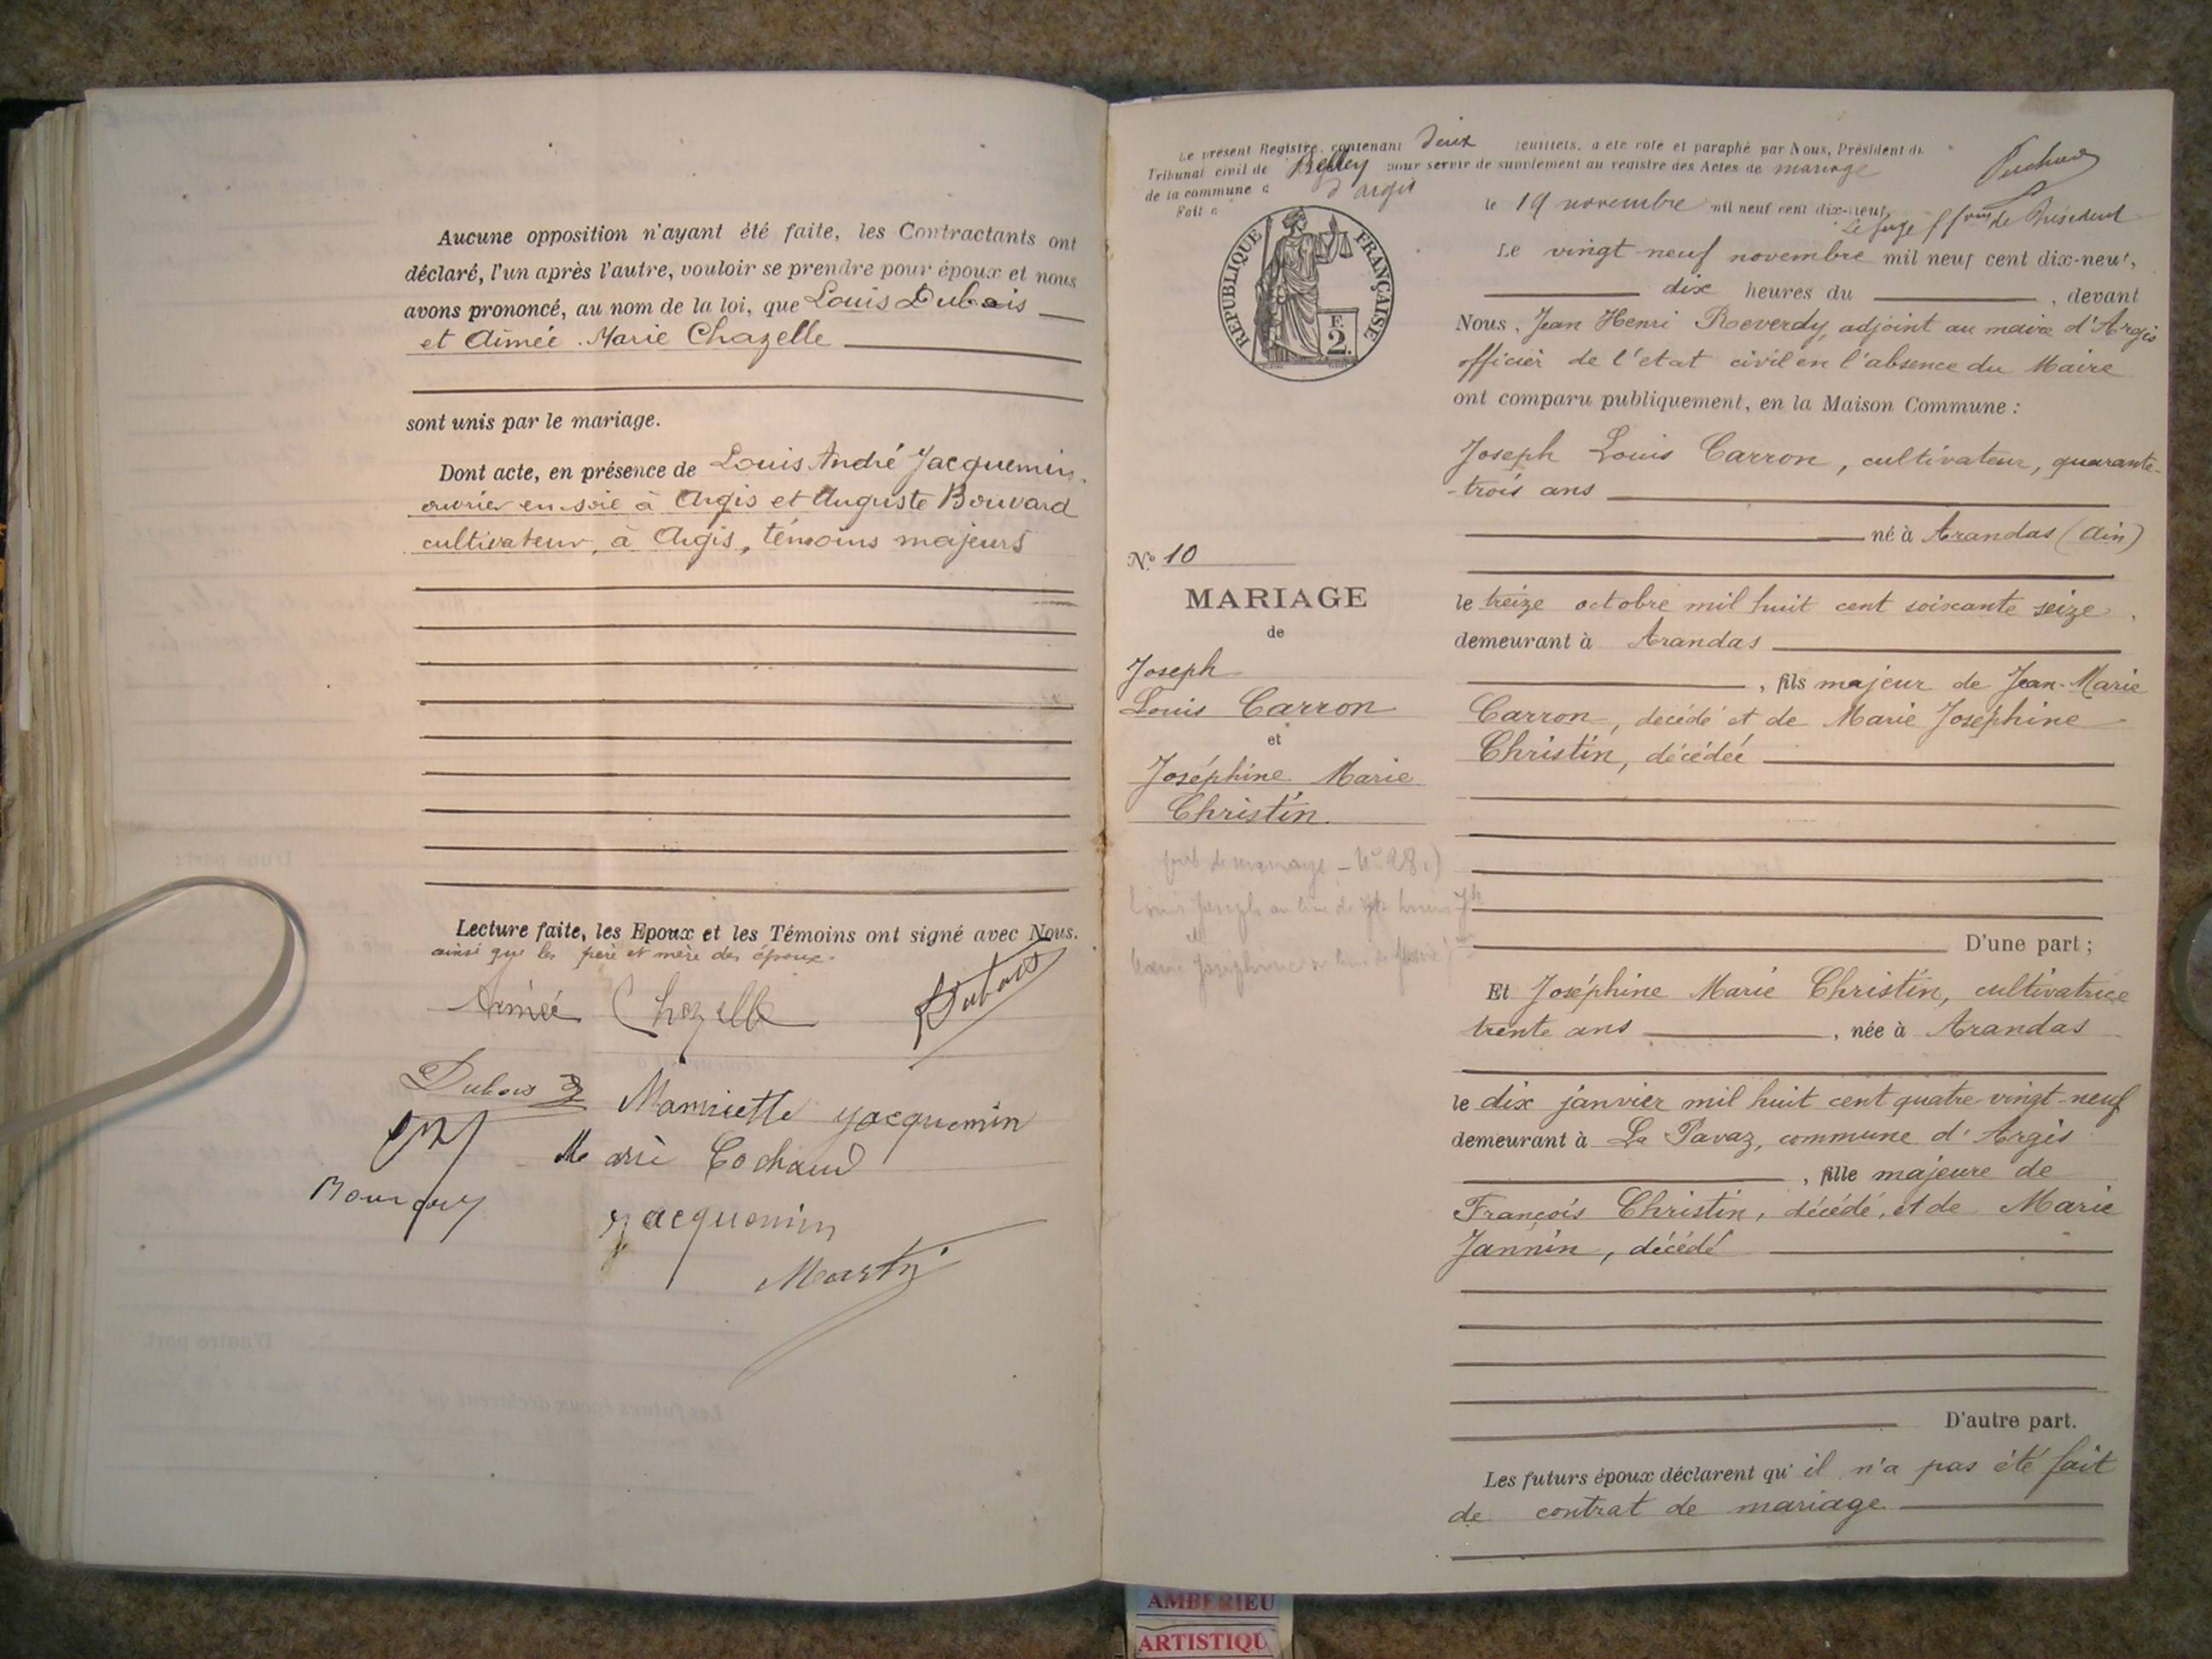 Aucune opposition n'ayant été faite, les Contractants ont
déclaré, l'un après l'autre, vouloir se prendre pour époux et nous
avons prononcé, au nom de la loi, que Louis Dubois
et Aimée Marie Chazelle
sont unis par le mariage.
Dont acte, en présence de Louis André Jacquemin,
ouvrier en soie à Argis et Auguste Bouvard
cultivateur, à Argis, témoins majeurs
Lecture faite, les Epoux et les Témoins ont signé avec Nous.
ainsi que les père et mère des époux.
Aimée Chazelle Dubois
Dubois
Mariette Jacquemin
Marie Cochand
Jacquemin
Le présent Registre, contenant deux feuillets, a été coté et paraphé par Nous, Président du
Tribunal civil de Belley pour servir de supplément au registre des Actes de mariage
de la commune d'Argis
Fait à le 19 novembre mil neuf cent dix-neuf,
Le Juge ff de Président
RÉPUBLIQUE FRANÇAISE
F.
2.
Le vingt-neuf novembre mil neuf cent dix-neuf,
dix heures du , devant
Nous, Jean Henri Reverdy, adjoint au maire d'Argis
officier de l'etat civil en l'absence du Maire
ont comparu publiquement, en la Maison Commune :
Joseph Louis Carron, cultivateur, quarante-
-trois ans
né à Arandas (Ain)
le treize octobre mil huit cent soixante seize,
demeurant à Arandas
, fils majeur de Jean-Marie
Carron, décédé et de Marie Joséphine
Christin, décédée
D'une part ;
N° 10
MARIAGE
de
Joseph
Louis Carron
et
Joséphine Marie
Christin.
Et Joséphine Marie Christin, cultivatrice
trente ans , née à Arandas
le dix janvier mil huit cent quatre-vingt-neuf
demeurant à La Pavaz, commune d'Argis
, fille majeure de
François Christin, décédé, et de Marie
Jannin, décédé
D'autre part.
Les futurs époux déclarent qu'il n'a pas été fait
de contrat de mariage
AMBERIEU
ARTISTIQU